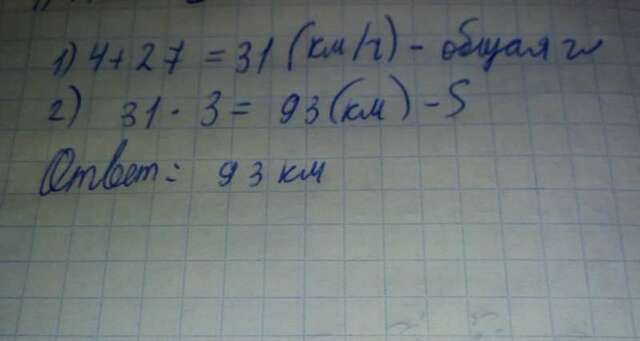 1) 4+27 = 31 (км/ч) - общая
2) 31 · 3 = 93 (км) - S
Ответ: 93 км